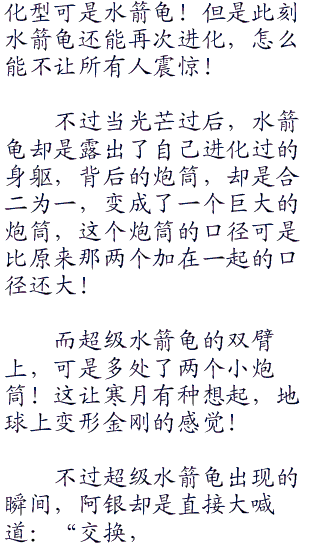 化型可是水箭龟！但是此刻
水箭龟还能再次进化，怎么
能不让所有人震惊！
不过当光芒过后，水箭
龟却是露出了自己进化过的
身躯，背后的炮筒，却是合
二为一，变成了一个巨大的
炮筒，这个炮筒的口径可是
比原来那两个加在一起的口
径还大！
而超级水箭龟的双臂
上，可是多处了两个小炮
筒！这让寒月有种想起，地
球上变形金刚的感觉！
不过超级水箭龟出现的
瞬间，阿银却是直接大喊
道：“交换，